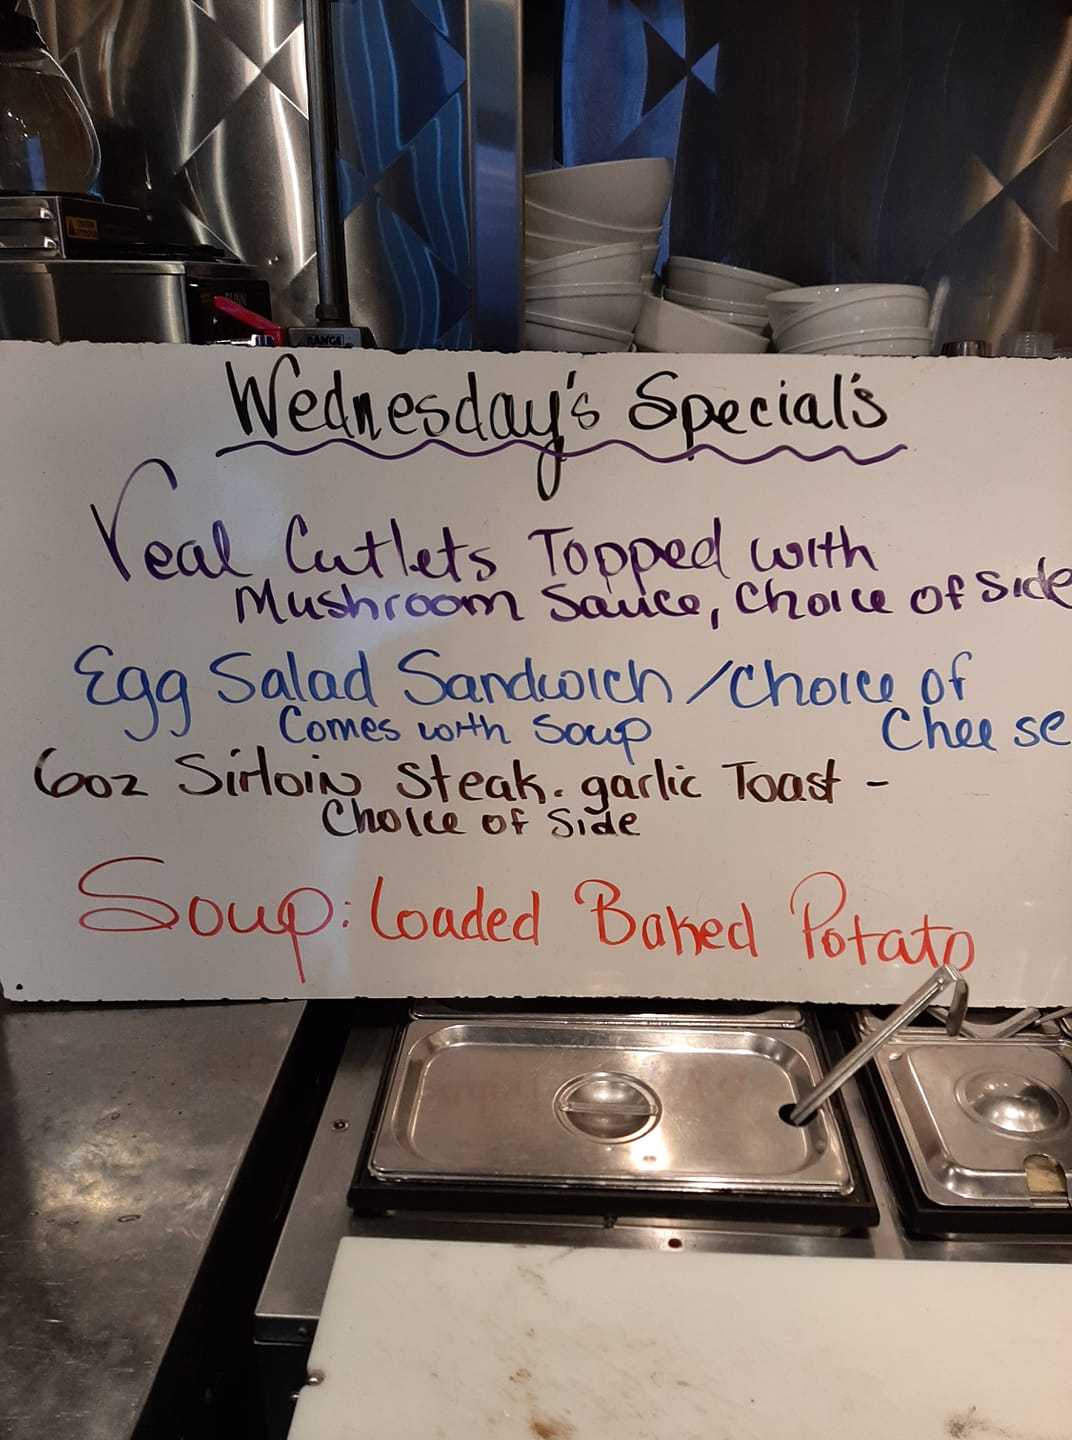 BUNN
RANGE
Wednesday's Special's
Veal Cutlets Topped with
Mushroom Sauce, Choice of Side
Egg Salad Sandwich / Choice of
Comes with Soup Cheese
6oz Sirloin Steak. garlic Toast -
Choice of Side
Soup: Loaded Baked Potato